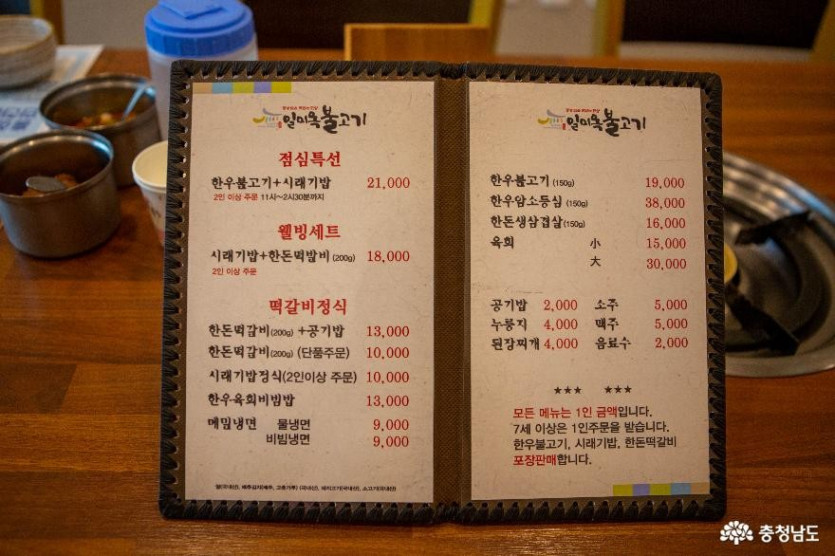 일미옥불고기
점심특선
한우불고기+시래기밥 21,000
2인 이상 주문 11시~2시30분까지
웰빙세트
시래기밥+한돈떡갈비 (200g) 18,000
2인 이상 주문
떡갈비정식
한돈떡갈비(200g) +공기밥 13,000
한돈떡갈비(200g) (단품주문) 10,000
시래기밥정식(2인이상 주문) 10,000
한우육회비빔밥 13,000
메밀냉면 물냉면 9,000
비빔냉면 9,000
일미옥불고기
한우불고기 (150g) 19,000
한우암소등심 (150g) 38,000
한돈생삼겹살(150g) 16,000
육회 小 15,000
大 30,000
공기밥 2,000 소주 5,000
누룽지 4,000 맥주 5,000
된장찌개 4,000 음료수 2,000
★★★ ★★★
모든 메뉴는 1인 금액입니다.
7세 이상은 1인주문을 받습니다.
한우불고기, 시래기밥, 한돈떡갈비
포장판매합니다.
충청남도